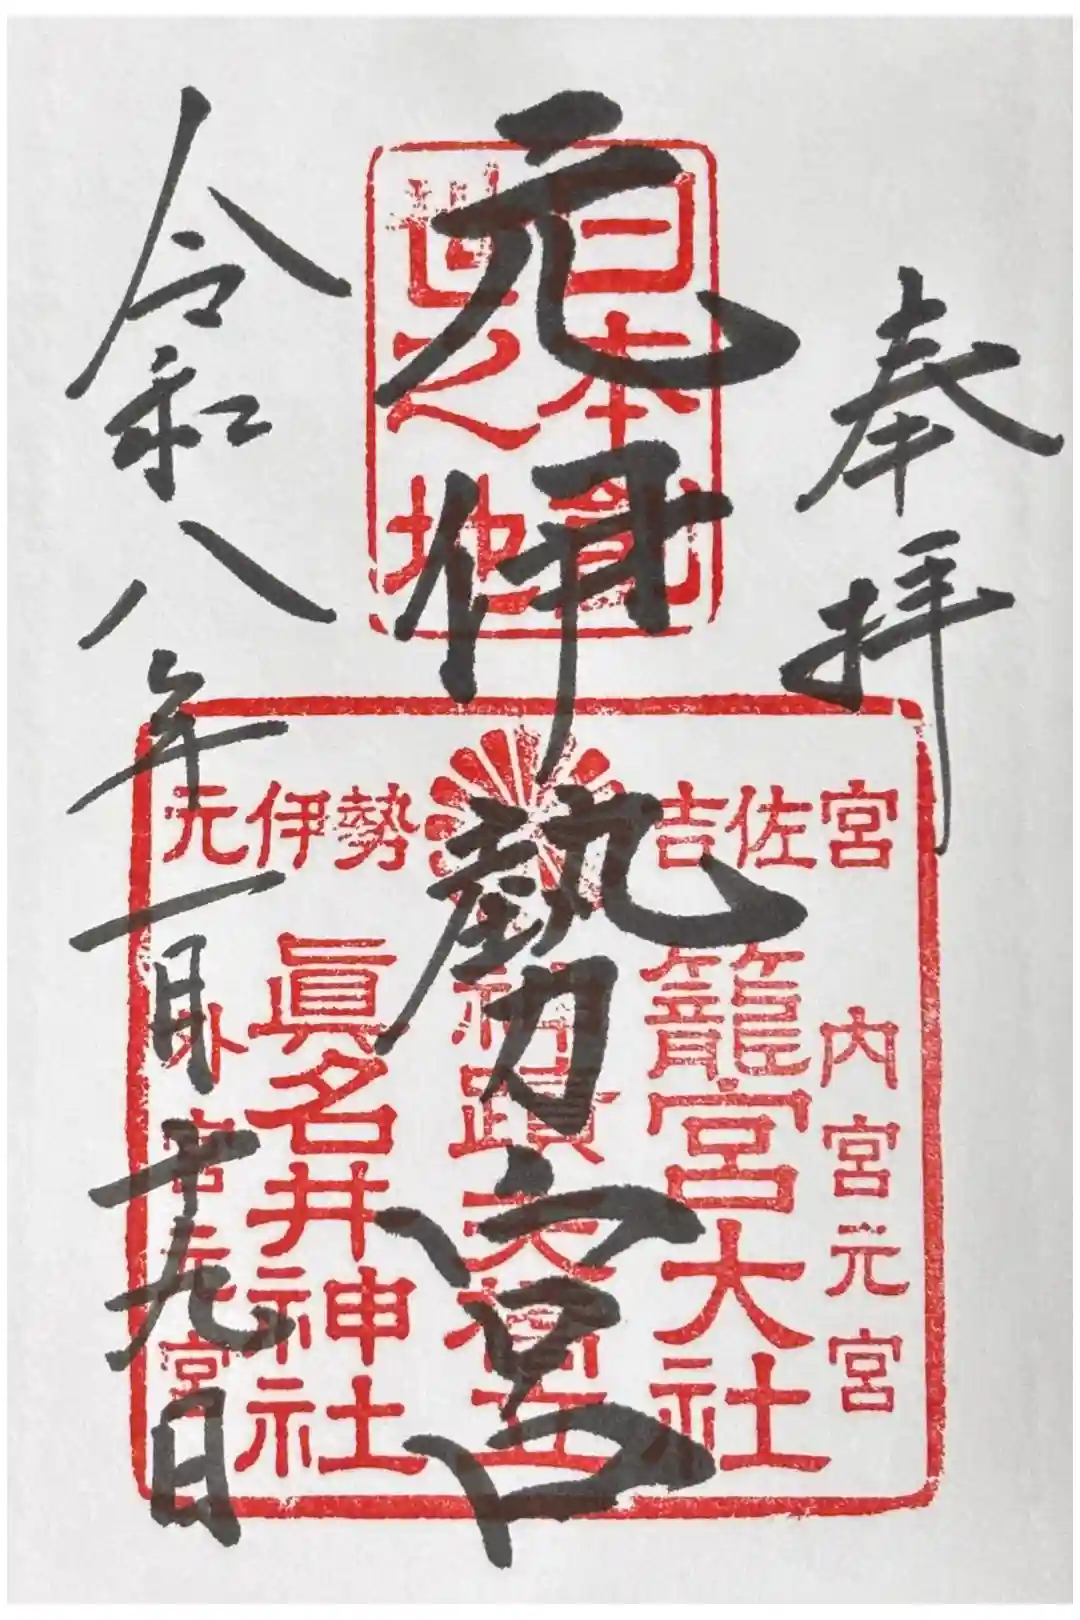 奉拝
元伊勢宮
令和八年一月十九日
日本創
世之地
元伊勢 吉佐宮
内宮元宮
籠宮大社
神蹟天橋立
眞名井神社
外宮元宮